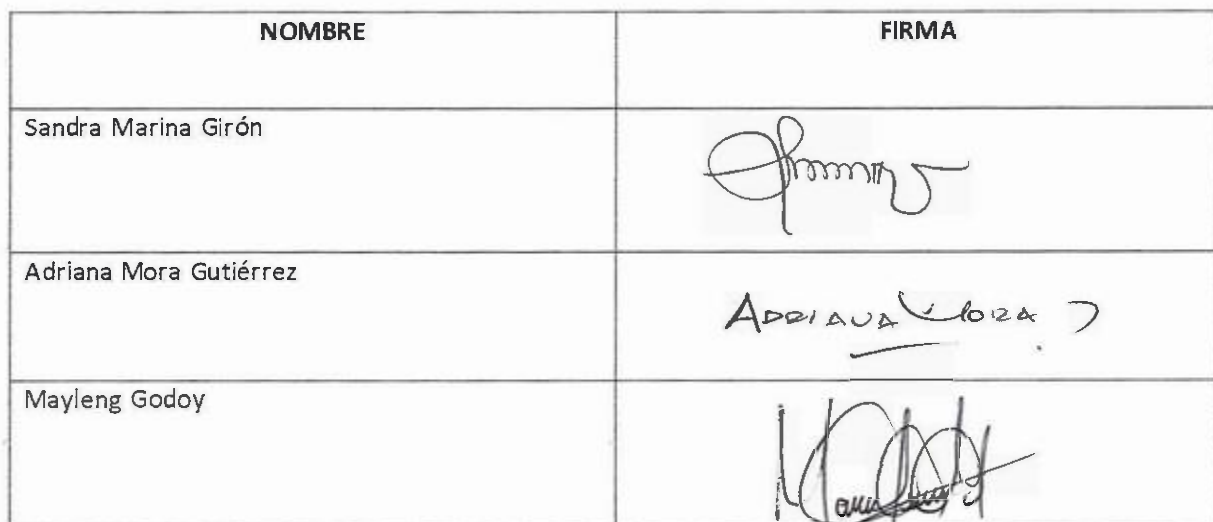 NOMBRE FIRMA
Sandra Marina Girón
Adriana Mora Gutiérrez
ADRIANA MORA
Mayleng Godoy